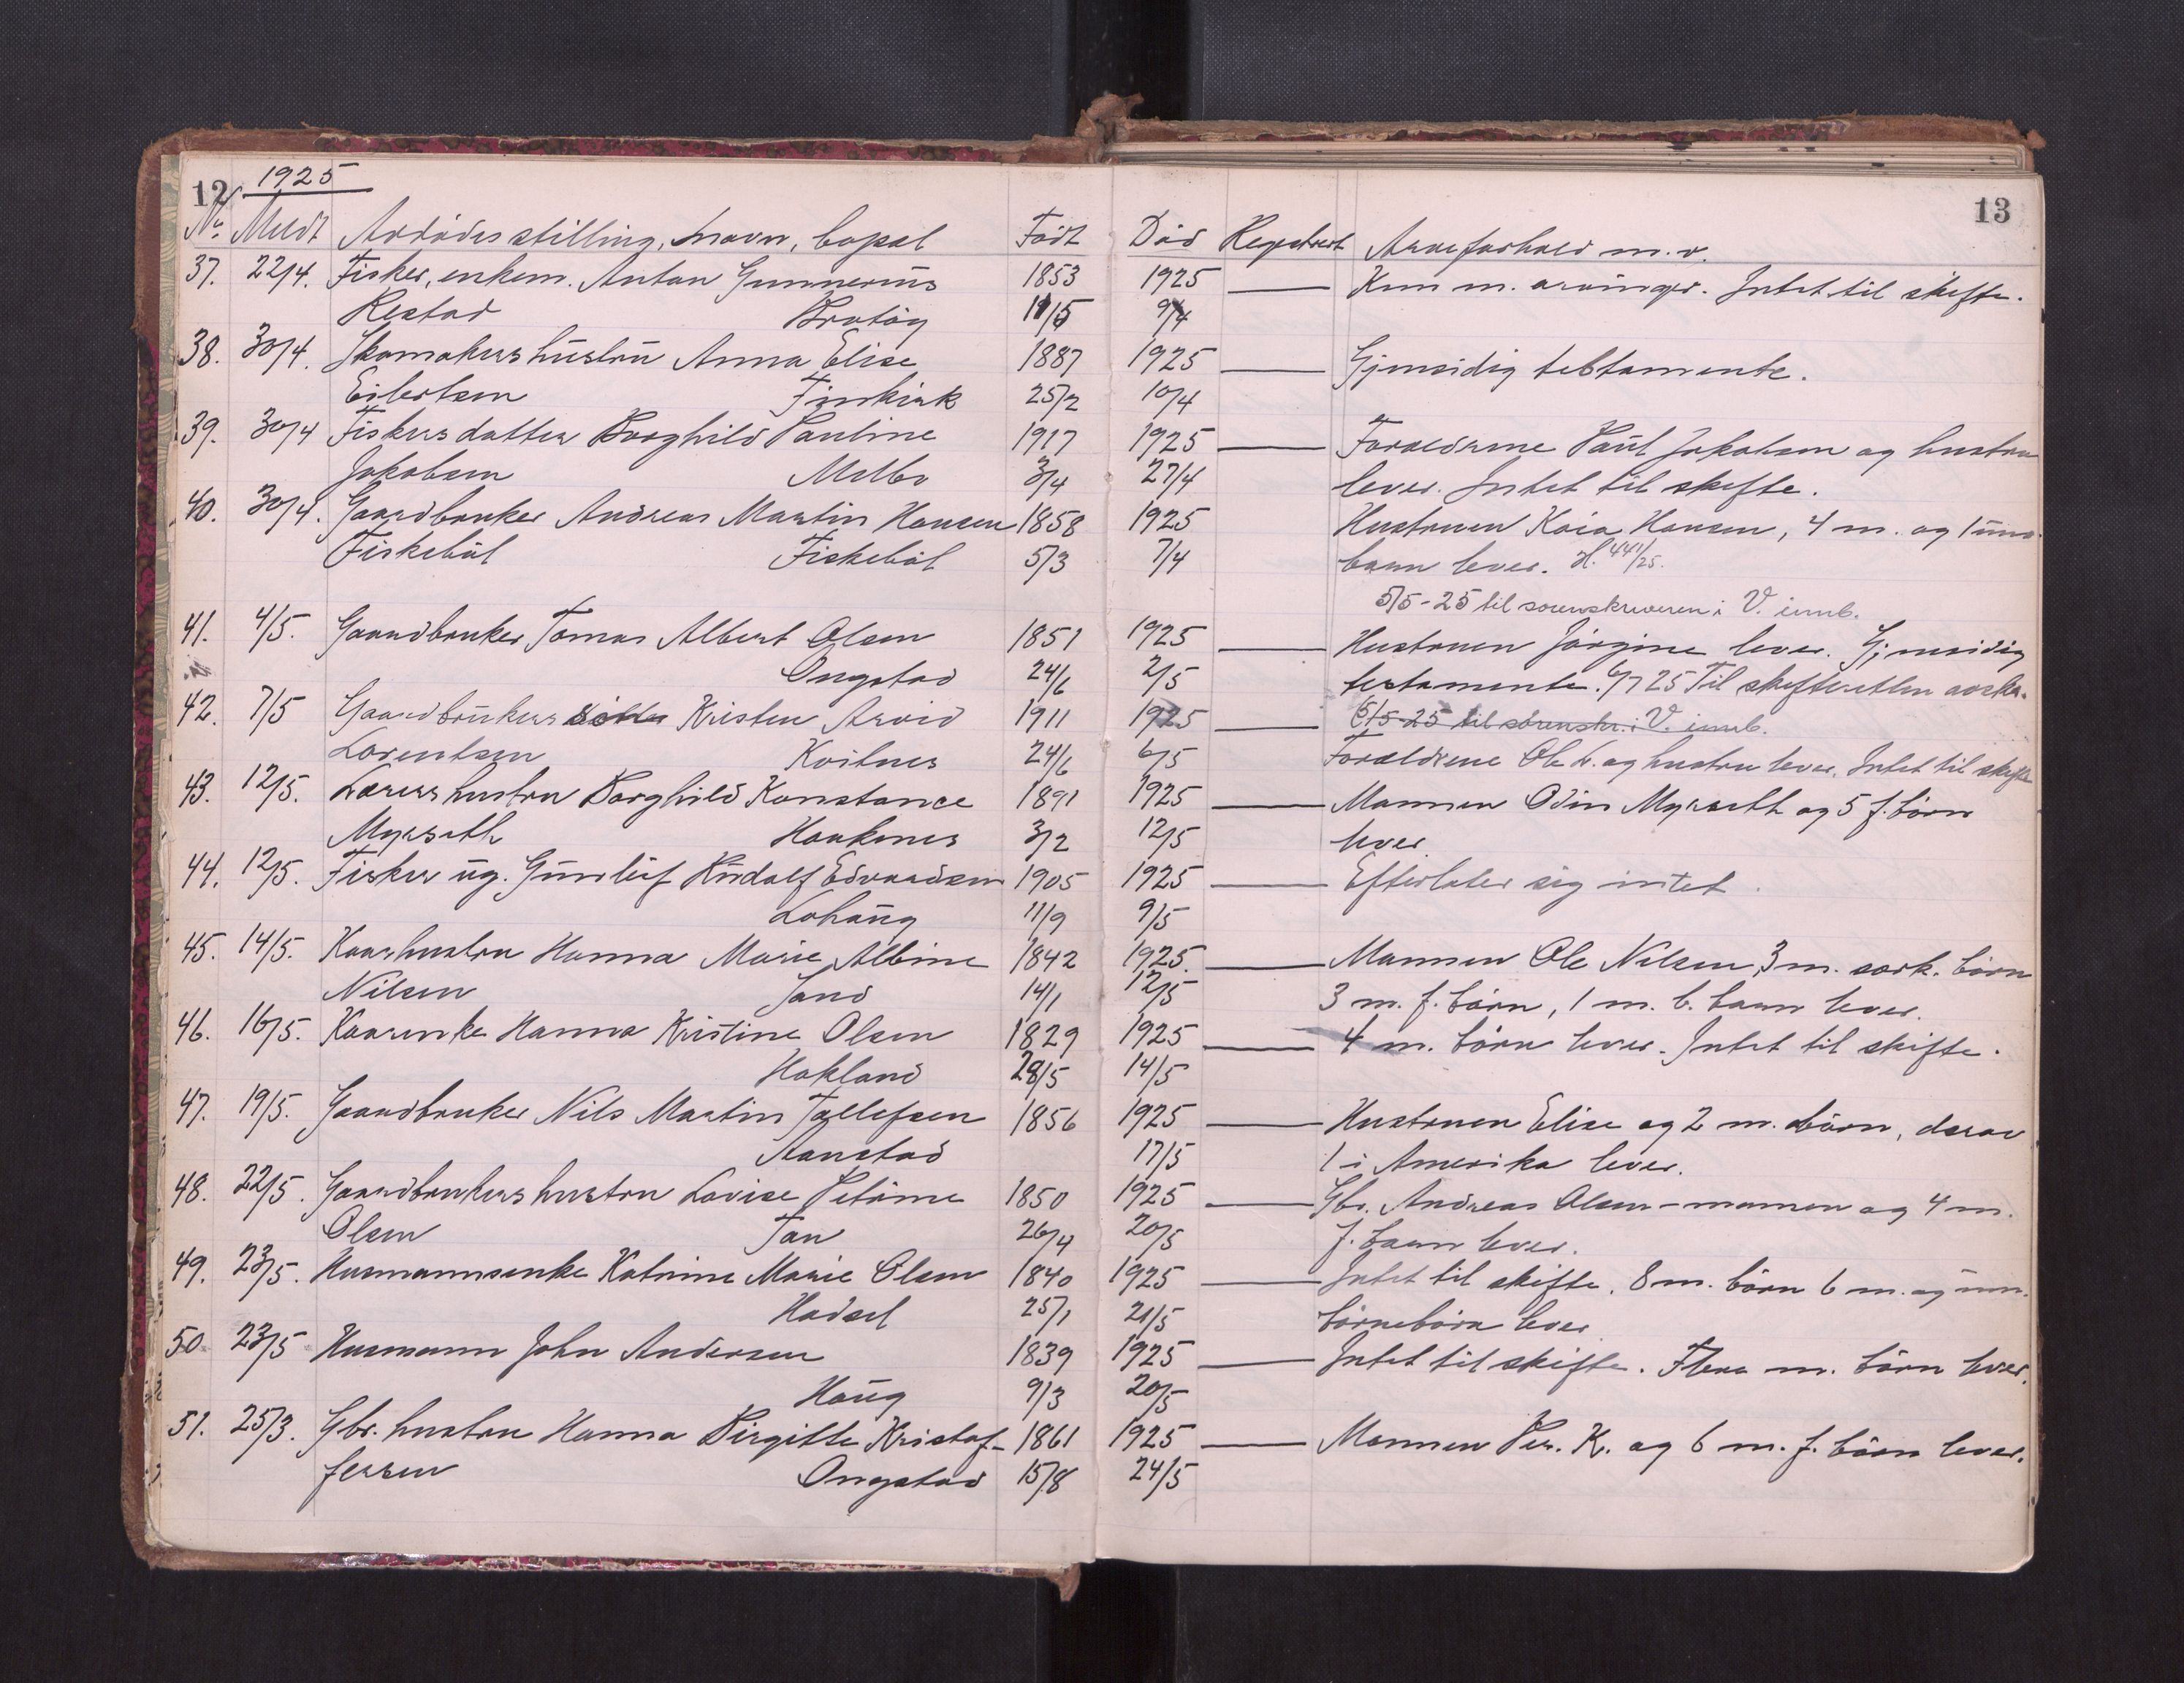 12 1925
13
No. Meldt Avdødes stilling, navn, bopæl Født Død Registrert Arveforhold m.v.
37. 22/4. Fisker, enkem. Anton Gunnerius 1853 1925 — Kun m. arvinger. Intet til skifte.
Restad Brotøy 11/5 9/4
38. 30/4. Skomakers hustru Anna Elise 1887 1925 — Gjensidig testamente.
Eilertsen Finkirk 25/2 10/4
39. 30/4 Fiskers datter Borghild Pauline 1917 1925 — Foraeldrene Paul Jakobsen og hustru
Jakobsen Melbo 3/4 27/4 lever. Intet til skifte.
40. 30/4. Gaardbruker Andreas Martin Hansen 1858 1925 Hustruen Kaia Hansen, 4 m. og 1 um.
Fiskebøl Fiskebøl 5/3 7/4 barn lever. H. 441/25.
5/5-25 til sorenskriveren i V. innb.
41. 4/5. Gaardbruker Tomas Albert Olsen 1851 1925 — Hustruen Jørgine lever. Gjensidig
Ongstad 24/6 2/5 testamente. 6/7 25 Til skifteretten
42. 7/5 Gaardbrukers Kristen Arvid 1911 1925 — (5/5-25 til sorenskr. i V. innb.
Lorentsen Kvitnes 24/6 6/5 Foraeldrene Ole L. og hustru lever. Intet til skifte
43. 12/5. Lærers hustru Borghild Konstance 1891 1925 — Mannen Odin Myrseth og 5 f. børn
Myrseth Haukenes 3/2 12/5 lever
44. 12/5. Fisker ug. Gunleif Rudolf Edvardsen 1905 1925 — Efterlater sig intet.
Lohaug 11/9 9/5
45. 14/5. Kaarhustru Hanna Marie Albine 1842 1925. — Mannen Ole Nilsen, 3 m. særk. børn
Nilsen Sand 14/1 12/5 3 m. f. børn, 1 m. b. barn lever.
46. 16/5. Kaarenke Hanna Kristine Olsen 1829 1925 — 4 m. børn lever. Intet til skifte.
Hokland 28/5 14/5
47. 19/5. Gaardbruker Nils Martin Tollefsen 1856 1925 — Hustruen Elise og 2 m. børn, derav
Aanstad 17/5 1 i Amerika lever.
48. 22/5. Gaardbrukers hustru Lovise Petrine 1850 1925 — Gbr. Andreas Olsen - mannen og 4 m.
Olsen Tan 26/4 20/5 f. barn lever.
49. 23/5. Husmannsenke Katrine Marie Olsen 1840 1925 — Intet til skifte. 8 m. børn 6 m. og um.
Hadsel 25/1 21/5 børnebørn lever
50. 23/5 Husmann John Andersen 1839 1925 — Intet til skifte. Flere m. børn lever.
Haug 9/3 20/5
51. 25/3. Gbr. hustru Hanna Birgitte Kristof- 1861 1925 — Mannen Per. K. og 6 m. f. børn lever.
fersen Ongstad 15/8 24/5